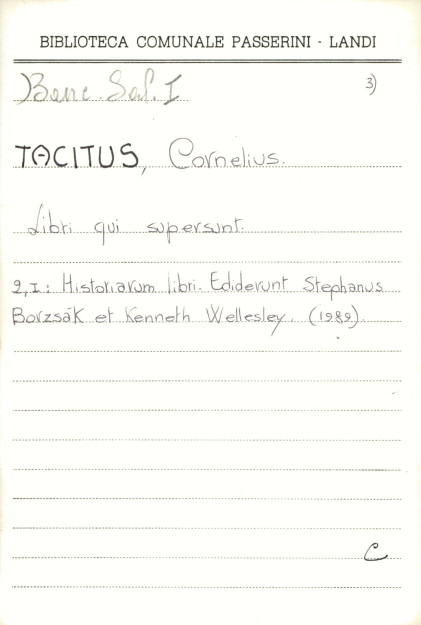 BIBLIOTECA COMUNALE PASSERINI - LANDI
Banc. Sal. I
3)
TACITUS, Cornelius.
Libri qui supersunt.
2,I: Historiarum libri. Ediderunt Stephanus
Borzsák et Kenneth Wellesley. (1989).
C